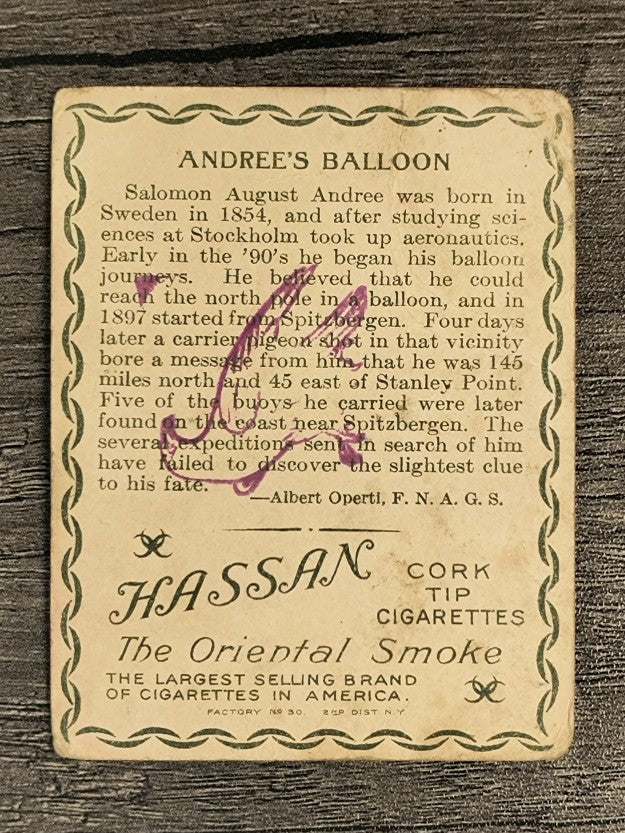 ANDREE'S BALLOON
Salomon August Andree was born in
Sweden in 1854, and after studying sci-
ences at Stockholm took up aeronautics.
Early in the '90's he began his balloon
journeys. He believed that he could
reach the north pole in a balloon, and in
1897 started from Spitzbergen. Four days
later a carrier pigeon shot in that vicinity
bore a message from him that he was 145
miles north and 45 east of Stanley Point.
Five of the buoys he carried were later
found on the coast near Spitzbergen. The
several expeditions sent in search of him
have failed to discover the slightest clue
to his fate.
—Albert Operti, F. N. A. G. S.
HASSAN
CORK
TIP
CIGARETTES
The Oriental Smoke
THE LARGEST SELLING BRAND
OF CIGARETTES IN AMERICA.
FACTORY Nº 30. 2ND DIST. N.Y.